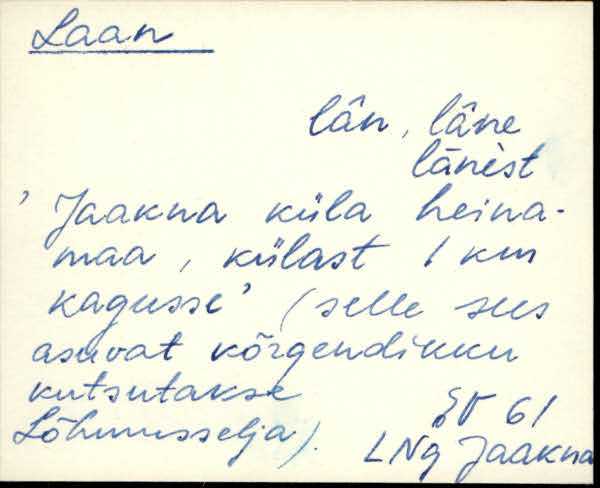 Laan
lân, lâne
lânèst
'Jaakna küla heina-
maa, külast 1 km
kagusse' (selle sees
asuvat kõrgendikku
kutsutakse
Lõhmusselja).
61
LNg Jaakna